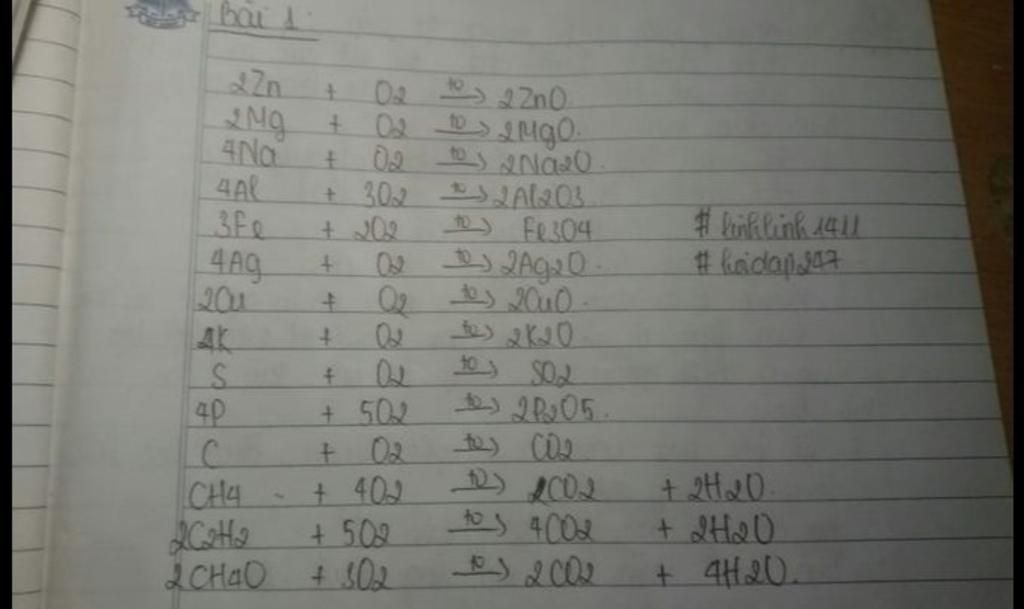 Bài 1.
2Zn + O2 to→ 2ZnO
2Mg + O2 to→ 2MgO.
4Na + O2 to→ 2Na2O.
4Al + 3O2 to→ 2Al2O3
3Fe + 2O2 to→ Fe3O4 # linhlinh1411
4Ag + O2 to→ 2Ag2O. # hoidap247
2Cu + O2 to→ 2CuO.
4K + O2 to→ 2K2O
S + O2 to→ SO2
4P + 5O2 to→ 2P2O5.
C + O2 to→ CO2
CH4 + 4O2 to→ 2CO2 + 2H2O.
2C2H2 + 5O2 to→ 4CO2 + 2H2O
2CH4O + 3O2 to→ 2CO2 + 4H2O.